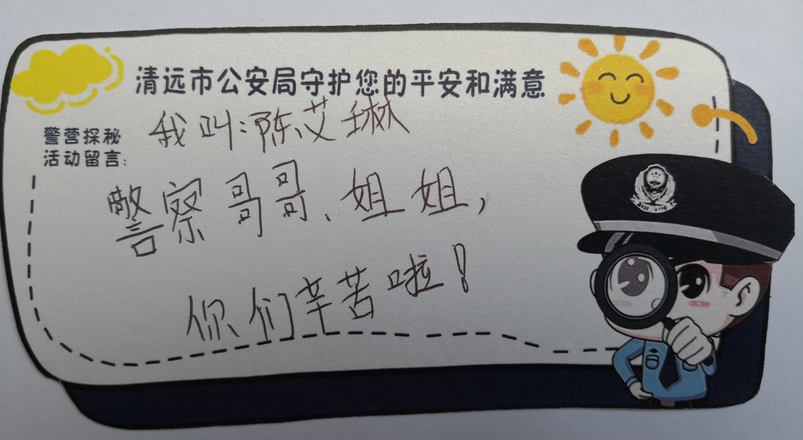 清远市公安局守护您的平安和满意
警营探秘
活动留言:
我叫:陈艾琳
警察哥哥、姐姐,
你们辛苦啦!